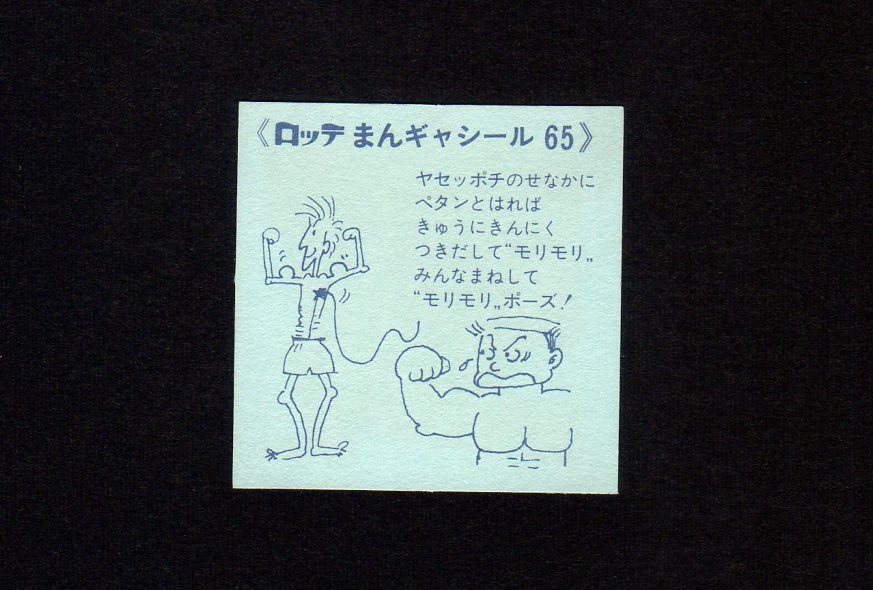 《ロッテ まんギャシール 65》
ヤセッポチのせなかに
ペタンとはれば
きゅうにきんにく
つきだして“モリモリ„
みんなまねして
“モリモリ„ポーズ!